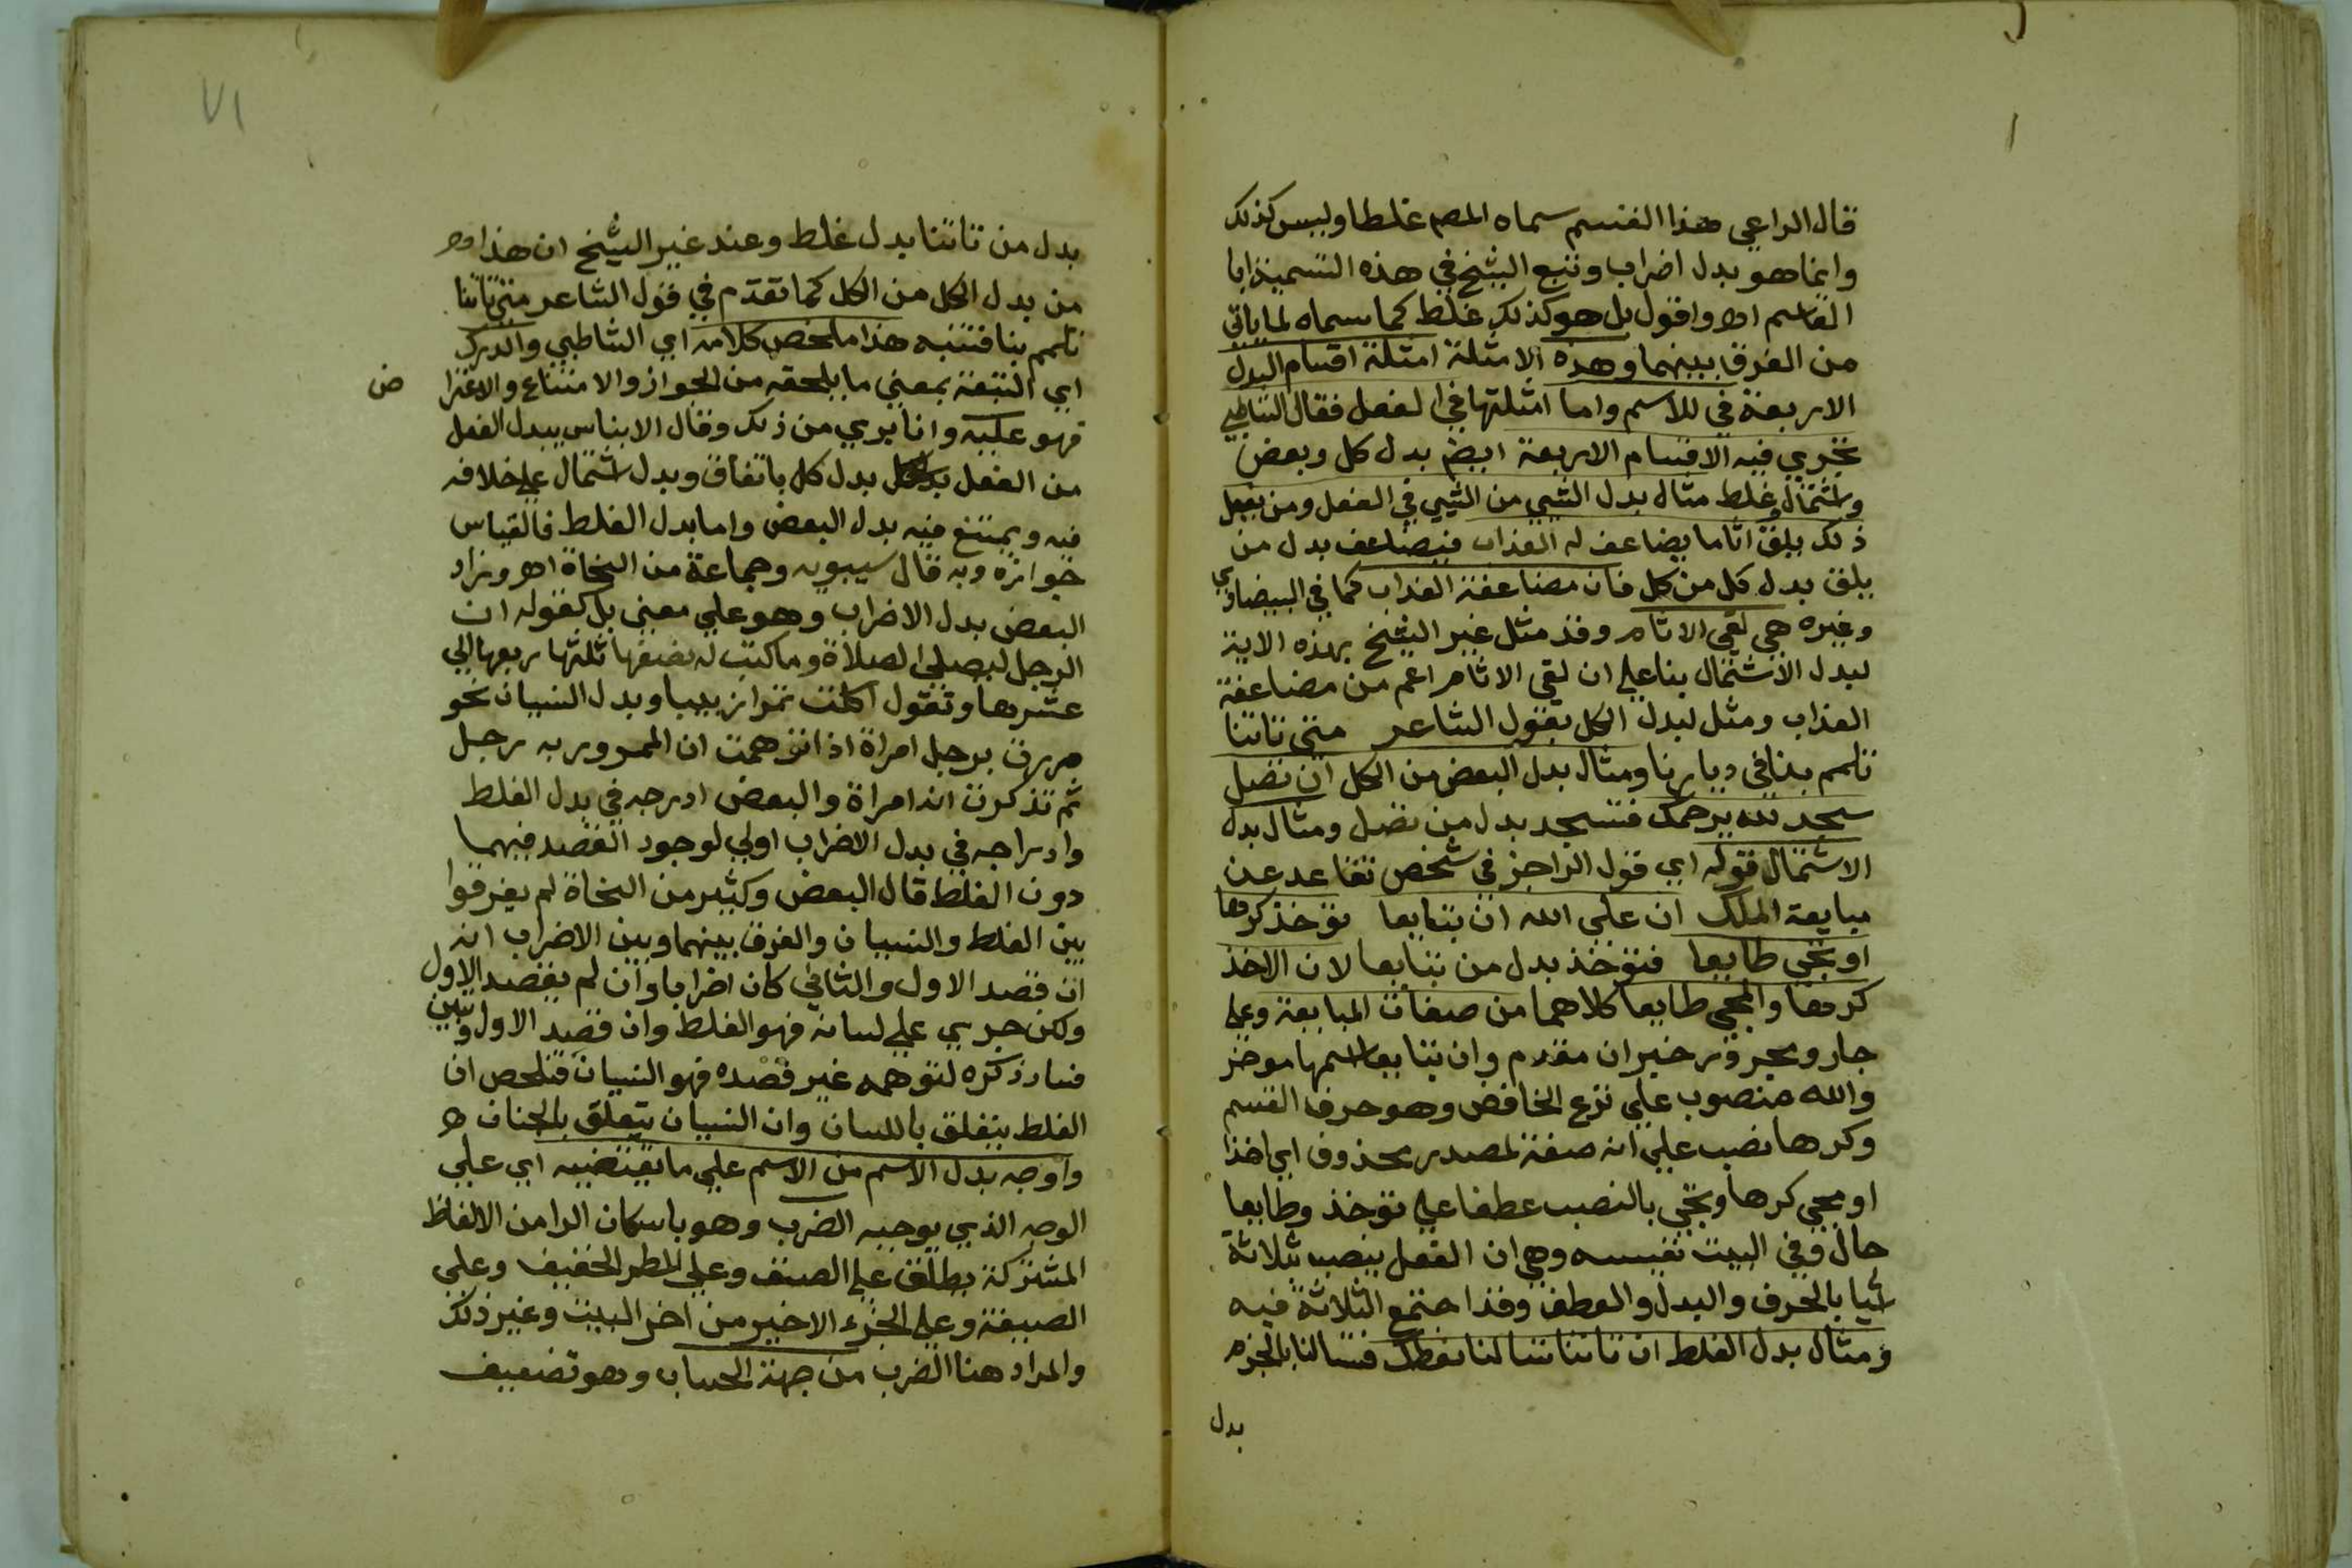 قال الراعي هذا القسم سماه المصم غلطا وليس كذلك
وانما هو بدل اضراب وتبع الشيخ في هذه التسمية ابا
القاسم اه واقول بل هو كذلك غلط كما سماه لما ياتي
من الفرق بينهما وهذه الامثلة امثلة اقسام البدل
الاربعة في للاسم واما امثلتها في الفعل فقال الشاطبي
تجري فيه الاقسام الاربعة ايضم بدل كل وبعض
واشتمال وغلط مثال بدل الشي من الشي في الفعل ومن يفعل
ذلك يلق اثاما يضاعف له العذاب فيضاعف بدل من
يلق بدل كل من كل فان مضاعفة العذاب كما في البيضاوي
وغيره هي لقي الاثام وقد مثل غير الشيخ بهذه الاية
لبدل الاشتمال بنا علي ان لقي الاثام اعم من مضاعفة
العذاب ومثل لبدل الكل بقول الشاعر متي تاتنا
تلمم بنا في ديارنا ومثال بدل البعض من الكل ان تصل
تسجد لله يرحمك فتسجد بدل من تصل ومثال بدل
الاشتمال قوله اي قول الراجز في شخص تقاعد عن
مبايعة الملك ان علي الله ان تبايعا توخذ كرها
او تجي طايعا فتوخذ بدل من تبايعا لان الاخذ
كرها والمجي طايعا كلاهما من صفات المبايعة وعلي
جار ومجرور خبر ان مقدم وان تبايعا اسمها موخر
والله منصوب علي نزع الخافض وهو حرف القسم
وكرها نصب علي انه صفة لمصدر محذوف اي اخذا
او مجي كرها وتجي بالنصب عطفا علي توخذ وطايعا
حال وفي البيت نفيسه وهي ان الفعل ينصب بثلاثة
اشيا بالحرف والبدل والعطف وقد اجتمع الثلاثة فيه
ومثال بدل الغلط ان تاتنا تسالنا نعطك فتسالنا بالجزم
بدل
٧١
بدل من تاتنا بدل غلط وعند غير الشيخ ان هذا اه
من بدل الكل من الكل كما تقدم في قول الشاعر متي تاتنا
تلمم بنا فتنبه هذا ملخص كلامه اي الشاطبي والدرك
اي التبعة بمعني ما يلحقه من الجواز والامتناع والاعترا
ض
فهو عليه وانا بري من ذلك وقال الابناس يبدل الفعل
من الفعل بدل كل باتفاق وبدل اشتمال علي خلاف
فيه ويمتنع فيه بدل البعض واما بدل الغلط فالقياس
جوازه وبه قال سيبويه وجماعة من النحاة اه وزاد
البعض بدل الاضراب وهو علي معني بل كقوله ان
الرجل ليصلي الصلاة وما كتب له نصفها ثلثها ربعها الي
عشرها وتقول اكلت تمرا زبيبا وبدل النسيان نحو
مررت برجل امراة اذا توهمت ان الممرور به رجل
ثم تذكرت انه امراة والبعض ادرجه في بدل الغلط
وادراجه في بدل الاضراب اولي لوجود القصد فيهما
دون الغلط قال البعض وكثير من النحاة لم يفرقوا
بين الغلط والنسيان والفرق بينهما وبين الاضراب انه
ان قصد الاول والثاني كان اضرابا وان لم يقصد الاول
ولكن جري علي لسانه فهو الغلط وان قصد الاول وتبين
فساد ذكره لتوهمه غير قصده فهو النسيان فتلخص ان
الغلط يتعلق باللسان وان النسيان يتعلق بالجنان اه
واوجه بدل الاسم من الاسم علي ما يقتضيه اي علي
الوجه الذي يوجبه الضرب وهو باسكان الرا من الالفاظ
المشتركة يطلق علي الصنف وعلي المطر الخفيف وعلي
الصيغة وعلي الجزء الاخير من اخر البيت وغير ذلك
والمراد هنا الضرب من جهة الحساب وهو تضعيف